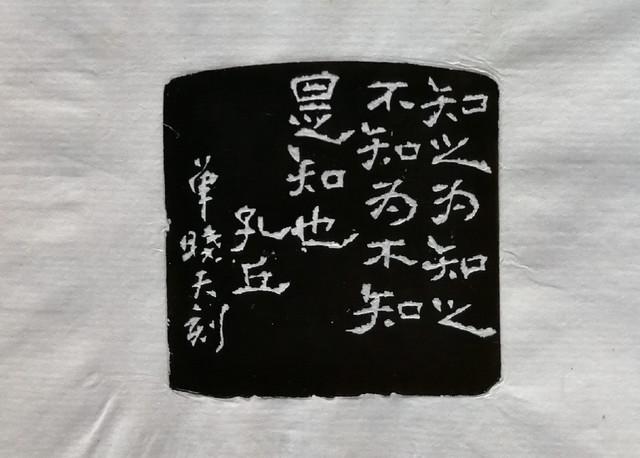 知之为知之
不知为不知
是知也
孔丘
单晓天刻